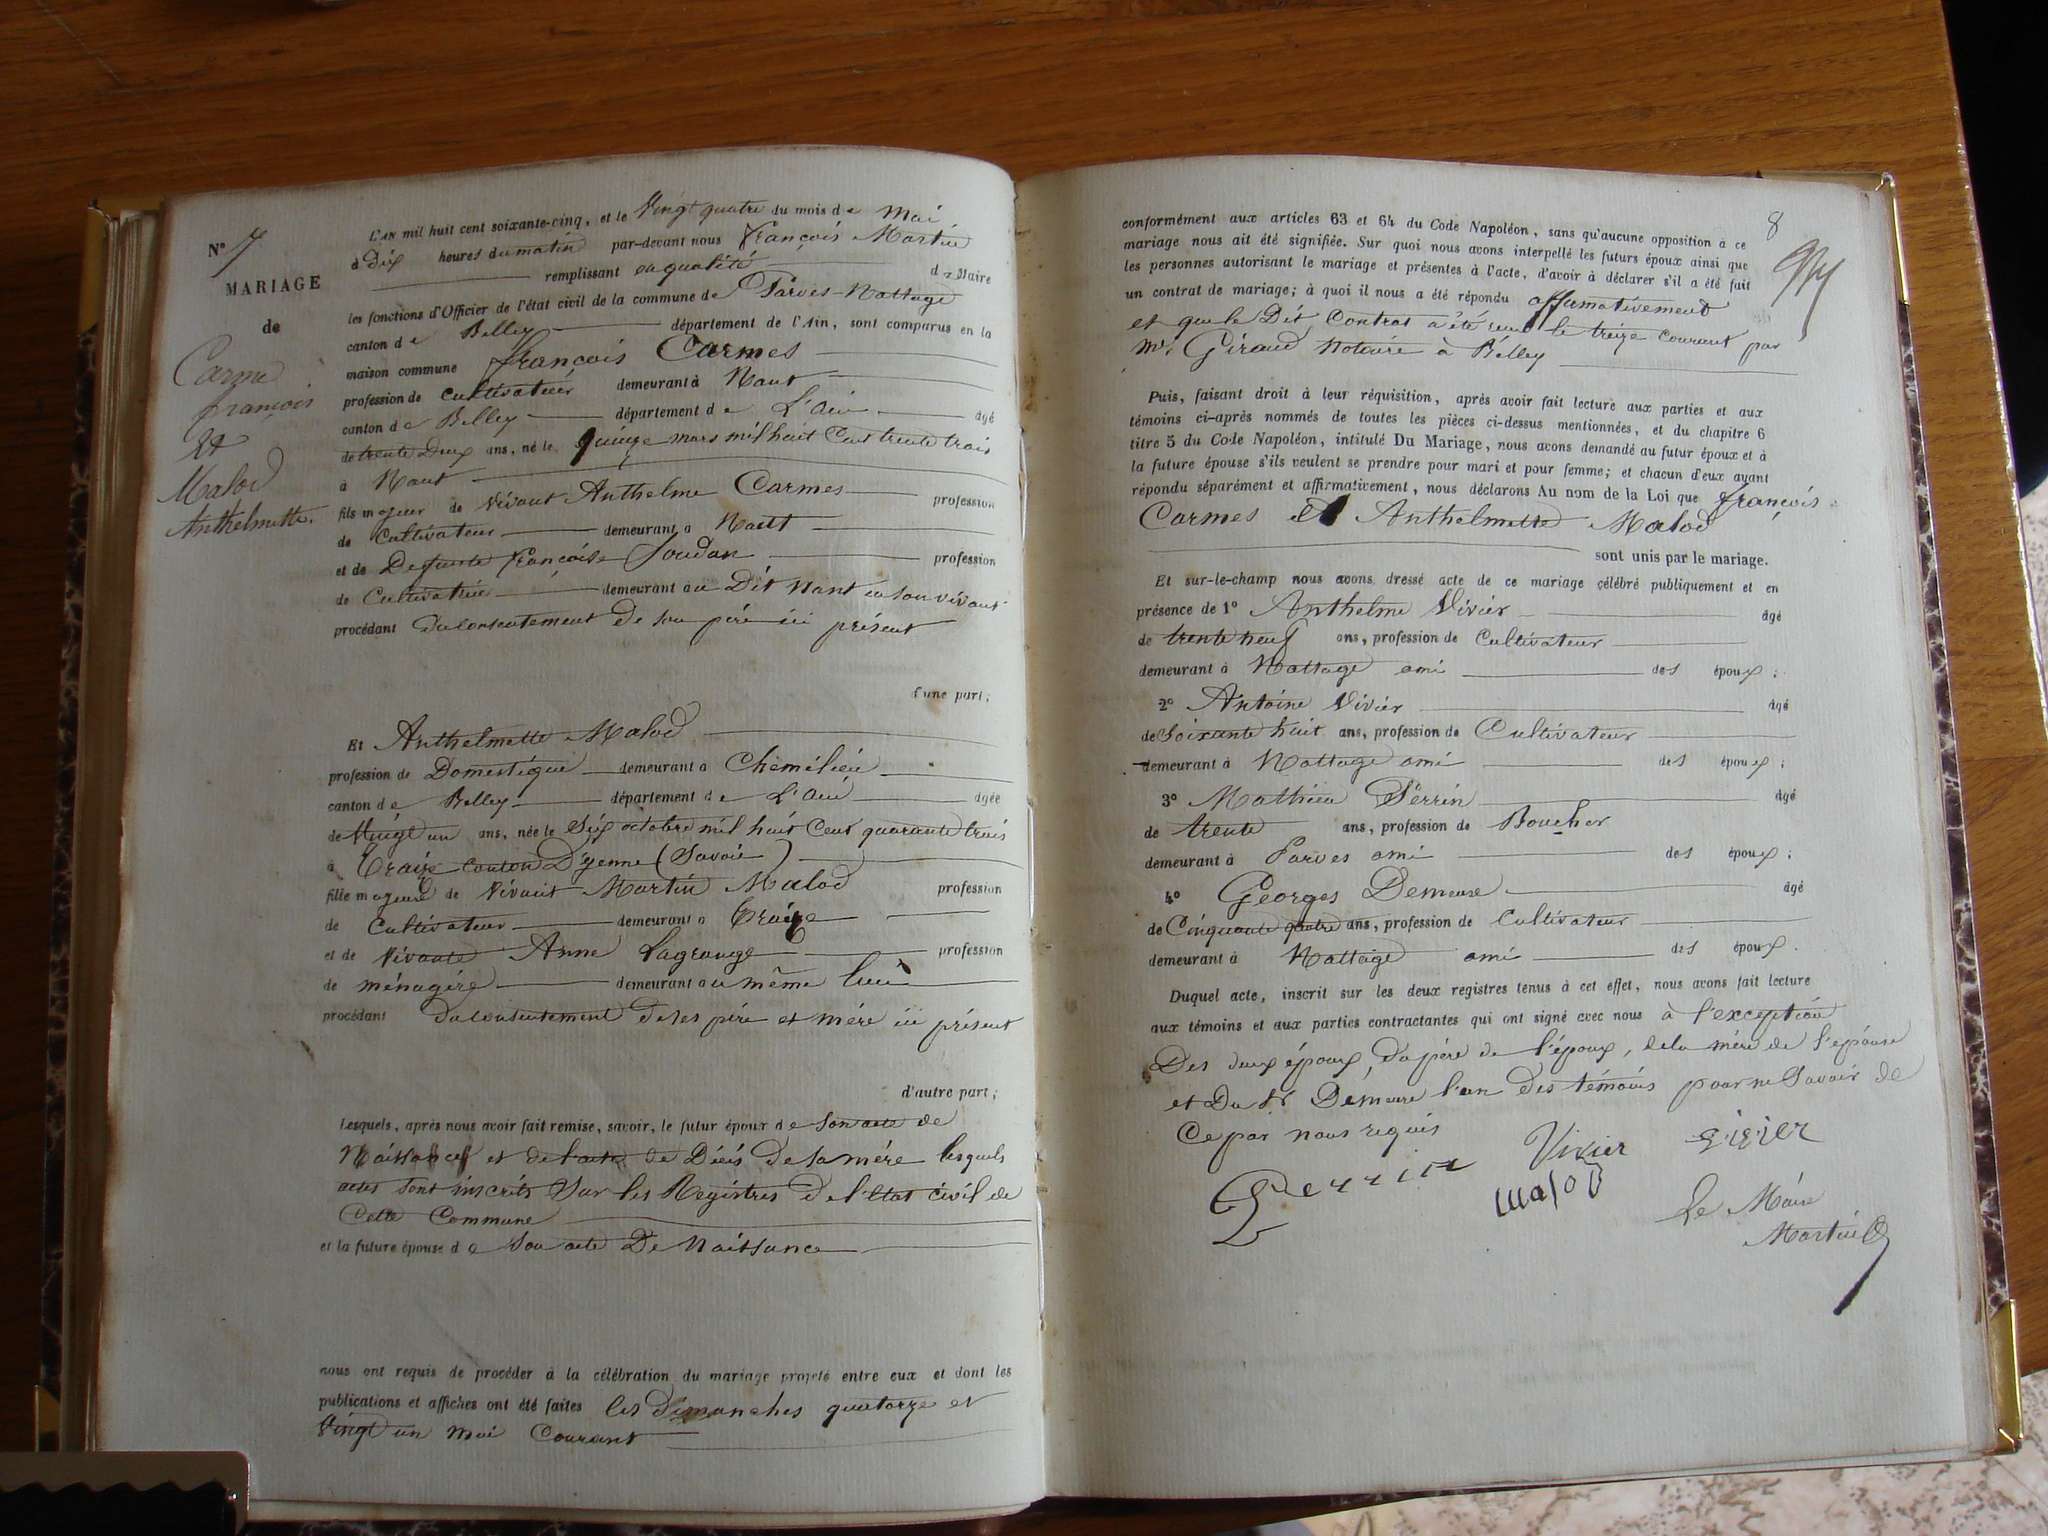 N° 7
MARIAGE
de
Carme
françois
et
Malod
Anthelmette.
L'AN mil huit cent soixante-cinq, et le Vingt quatre du mois de Mai
à Dix heures du matin par-devant nous françois Martin
remplissant en qualité de Maire
les fonctions d'Officier de l'état civil de la commune de Parves-Nattage
canton de Belley département de l'Ain, sont comparus en la
maison commune françois Carmes
profession de Cultivateur demeurant à Nant
canton de Belley département de L'ain âgé
de trente deux ans, né le quinze mars mil huit Cent trente trois
à Nant
fils majeur de vivant Anthelme Carmes profession
de Cultivateur demeurant à Nant
et de Defunte françoise Soudan profession
de Cultivatrice demeurant au Dit Nant en son vivant
procédant du consentement de son père ici présent
d'une part;
Et Anthelmette Malod
profession de Domestique demeurant à Chemilieu
canton de Belley département de L'ain âgée
de Vingt un ans, née le Six octobre mil huit Cent quarante trois
à Traize canton D'yenne (Savoie)
fille majeure de Vivant Martin Malod profession
de Cultivateur demeurant à Traize
et de Vivante Anne Lagrange profession
de ménagère demeurant au même lieu
procédant du consentement de ses père et mère ici présent
d'autre part;
Lesquels, après nous avoir fait remise, savoir, le futur époux de Son acte de
Naissance et de l'acte de Décès de sa mère lesquels
actes sont inscrits Sur les Registres de l'Etat civil de
Cette Commune
et la future épouse de Son acte De Naissance
nous ont requis de procéder à la célébration du mariage projeté entre eux et dont les
publications et affiches ont été faites les Dimanches quatorze et
Vingt un mai Courant
8
conformément aux articles 63 et 64 du Code Napoléon, sans qu'aucune opposition à ce
mariage nous ait été signifiée. Sur quoi nous avons interpellé les futurs époux ainsi que
les personnes autorisant le mariage et présentes à l'acte, d'avoir à déclarer s'il a été fait
un contrat de mariage; à quoi il nous a été répondu affirmativement
et que le Dit Contrat a été reçu le treize courant par
Me Giraud Notaire à Belley
Puis, faisant droit à leur réquisition, après avoir fait lecture aux parties et aux
témoins ci-après nommés de toutes les pièces ci-dessus mentionnées, et du chapitre 6
titre 5 du Code Napoléon, intitulé Du Mariage, nous avons demandé au futur époux et à
la future épouse s'ils veulent se prendre pour mari et pour femme; et chacun d'eux ayant
répondu séparément et affirmativement, nous déclarons Au nom de la Loi que françois
Carmes et Anthelmette Malod
sont unis par le mariage.
Et sur-le-champ nous avons dressé acte de ce mariage célébré publiquement et en
présence de 1° Anthelme Vivier âgé
de trente neuf ans, profession de Cultivateur
demeurant à Nattage ami des époux;
2° Antoine Vivier âgé
de Soixante huit ans, profession de Cultivateur
demeurant à Nattage ami des époux;
3° Mathieu Perrin âgé
de trente ans, profession de Boucher
demeurant à Parves ami des époux;
4° Georges Demeure âgé
de Cinquante quatre ans, profession de Cultivateur
demeurant à Nattage ami des époux.
Duquel acte, inscrit sur les deux registres tenus à cet effet, nous avons fait lecture
aux témoins et aux parties contractantes qui ont signé avec nous à l'exception
Des deux époux, du père de l'époux, de la mère de l'épouse
et Du Sr Demeure l'un des témoins pour ne Savoir de
Ce par nous requis
Perrin Vivier vivier
malod
Le Maire
Martin